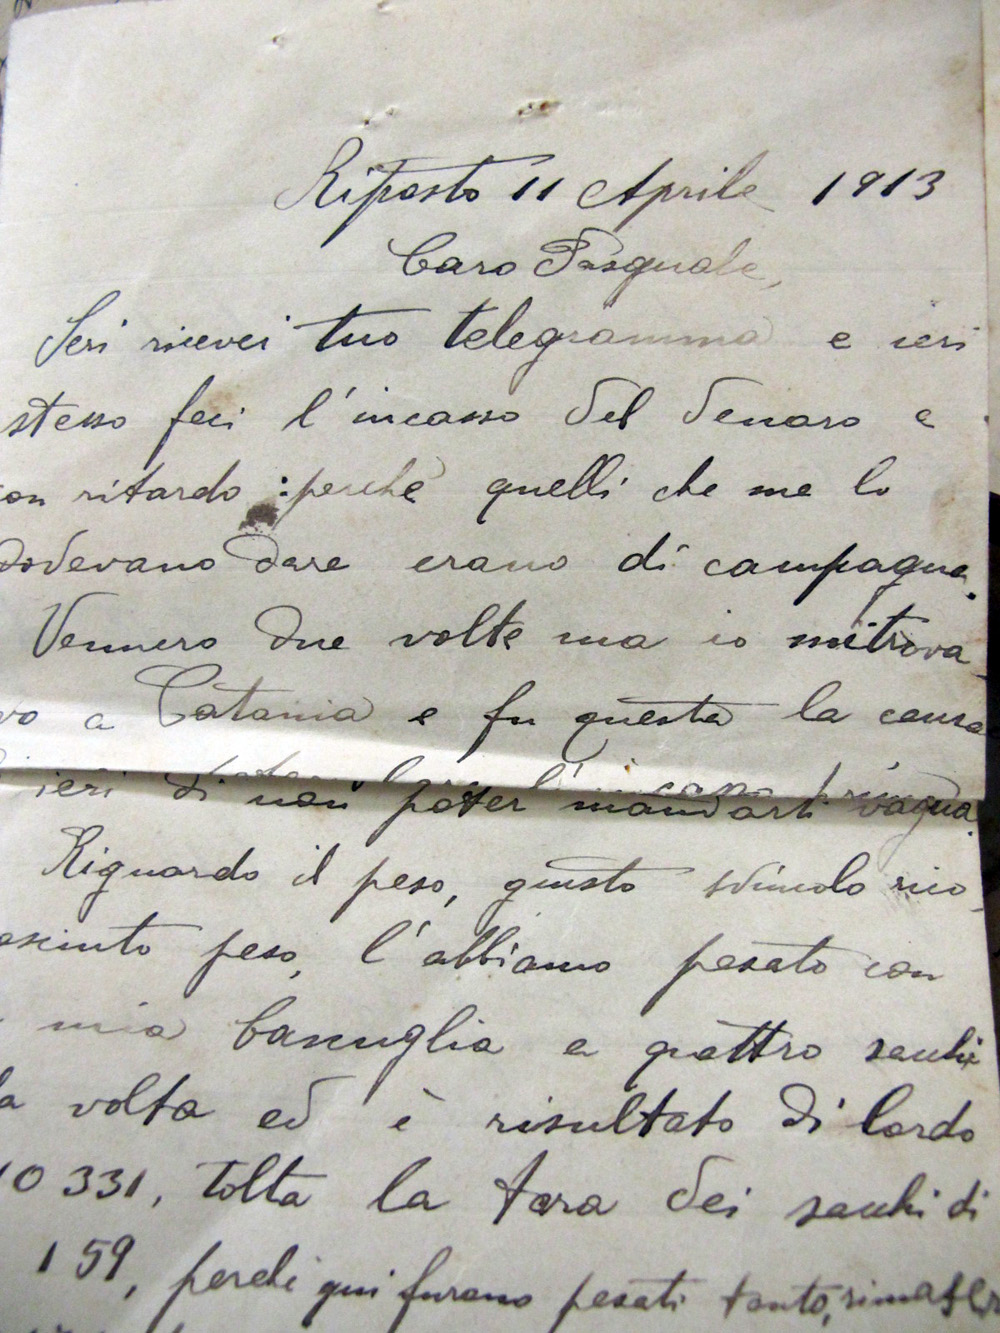 Riposto 11 Aprile 1913
Caro Pasquale,
Ieri ricevei tuo telegramma e ieri
stesso feci l'incasso del denaro e
con ritardo: perchè quelli che me lo
dodevano dare erano di campagna.
Vennero due volte ma io mi trova
vo a Catania e fu questa la causa
ieri di non poter mandarti vaglia.
Riguardo il peso, giusto svincolo rico
nosciuto peso, l'abbiamo pesato con
mia bascuglia a quattro sacchi
la volta ed è risultato di lordo
10 331, tolta la tara dei sacchi di
159, perchè qui furano pesati tanto,